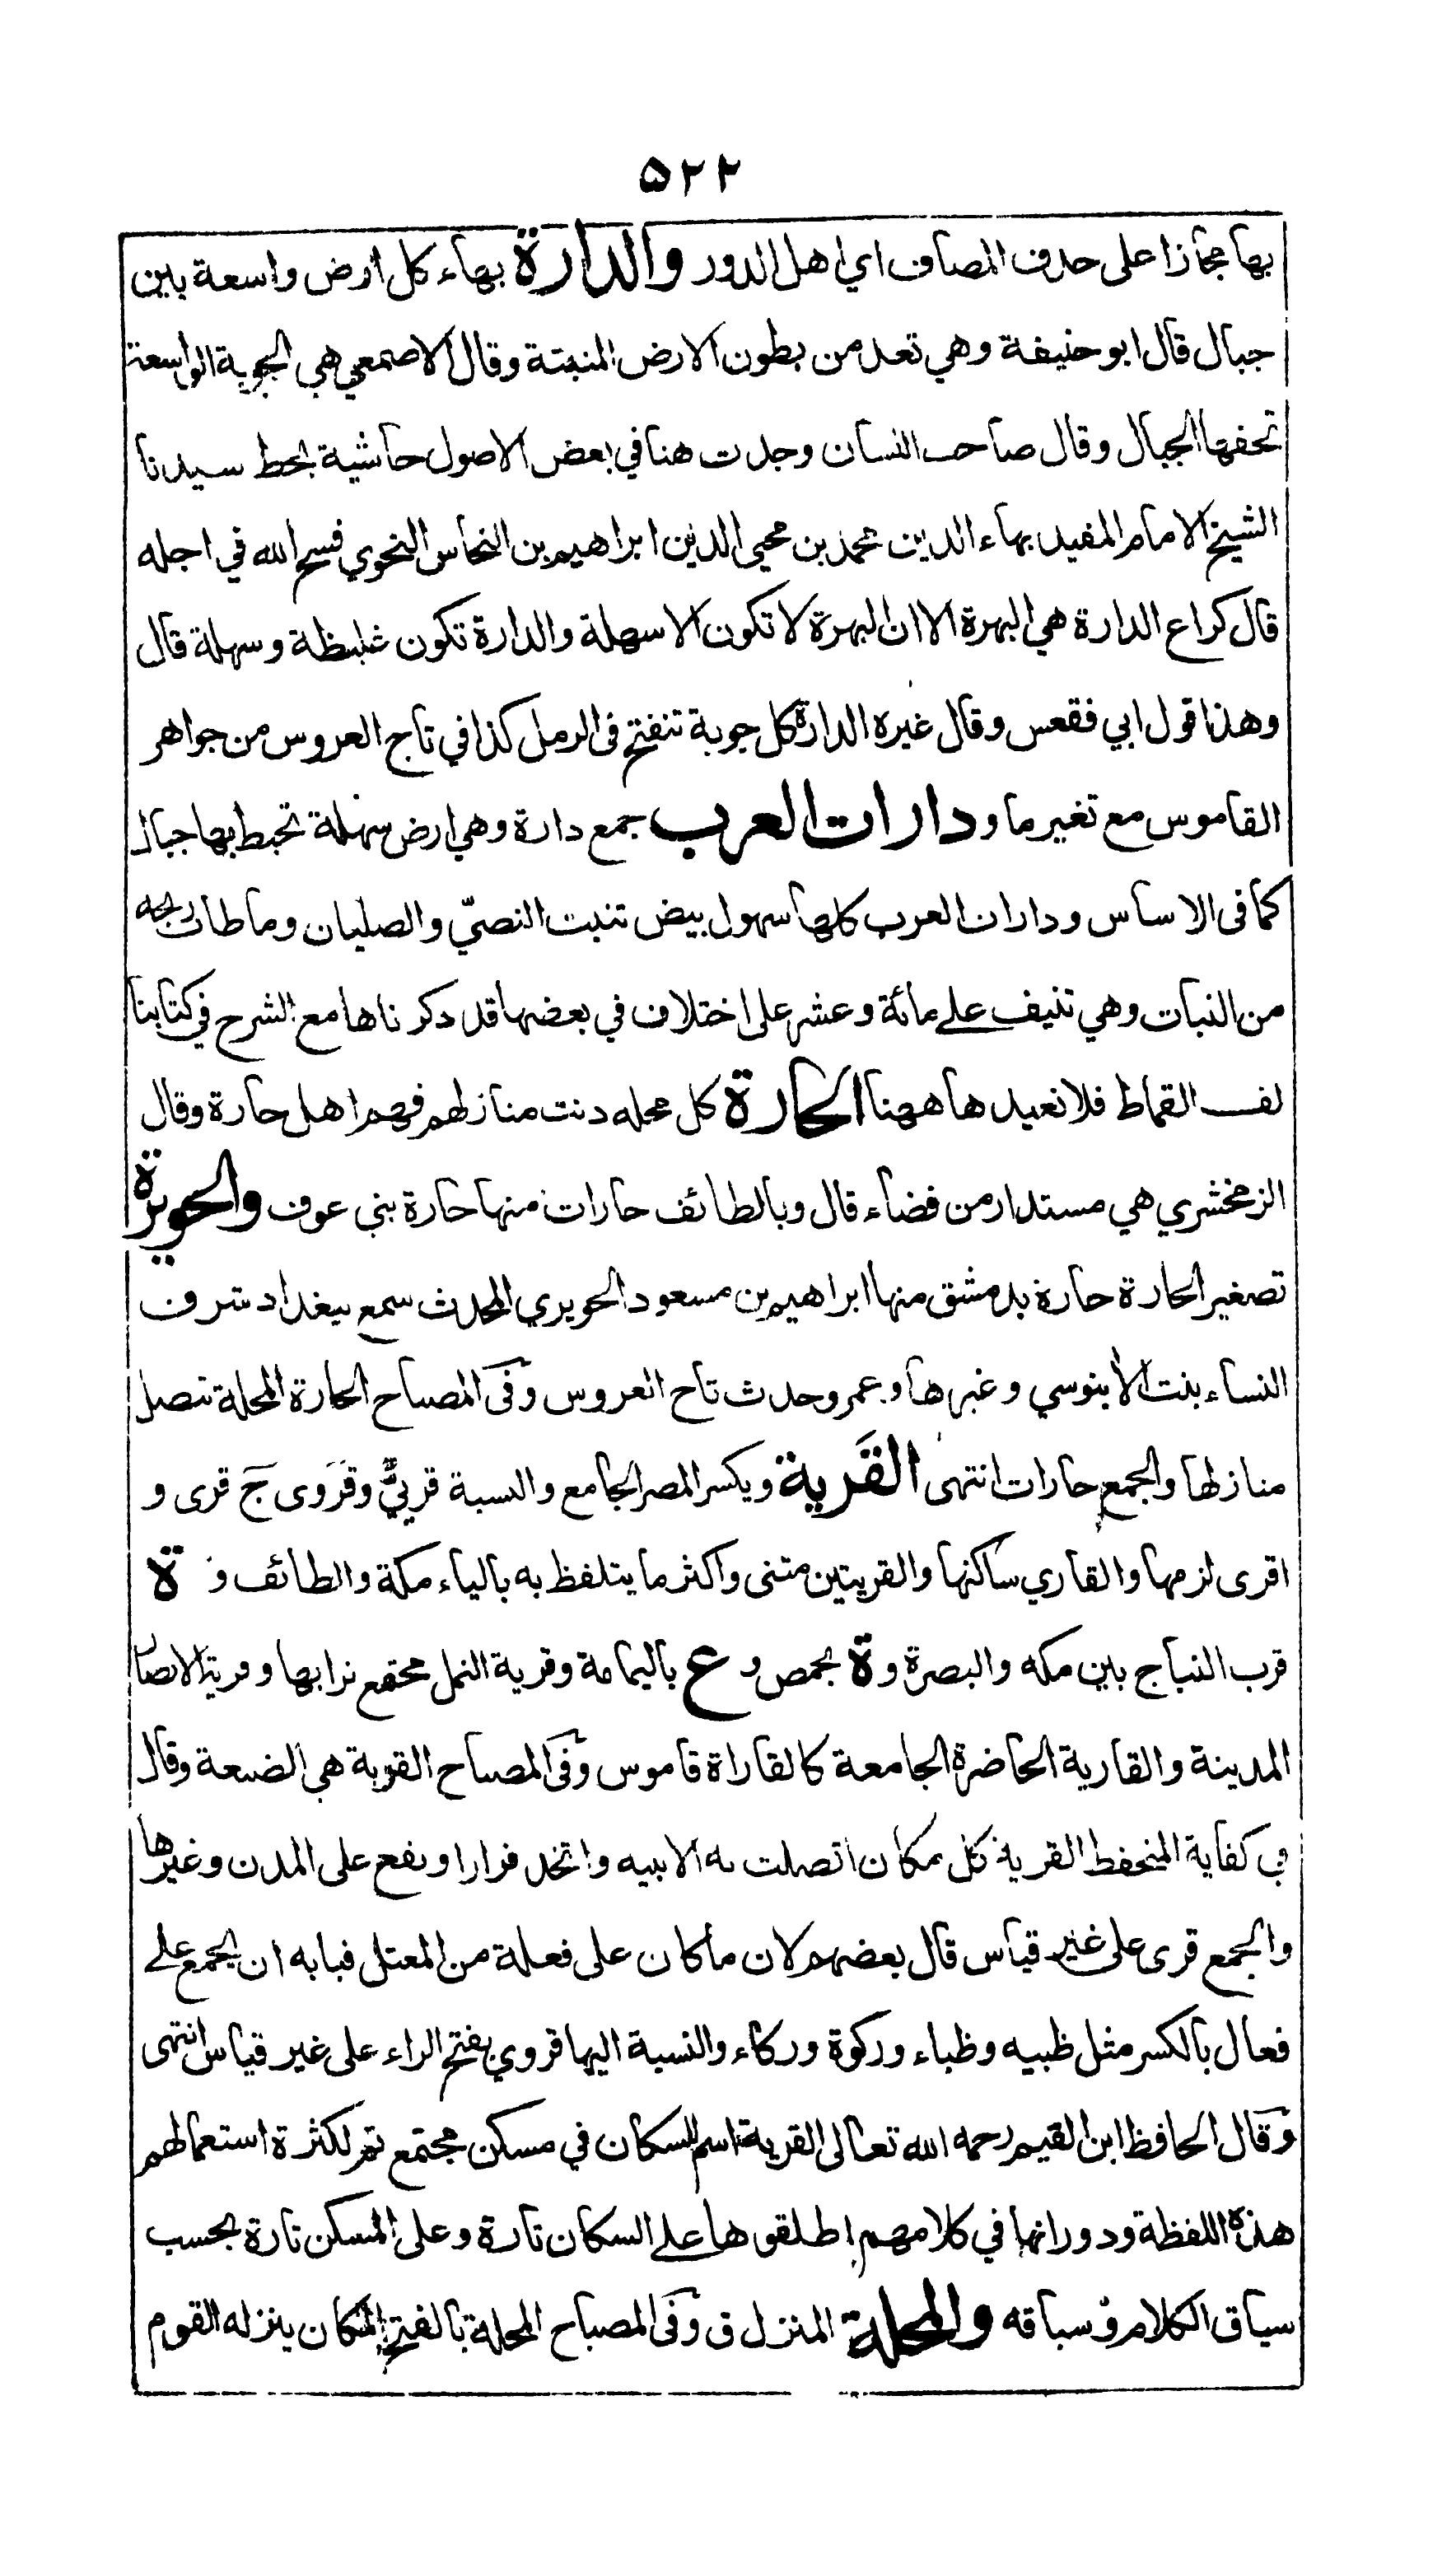 ٥٢٢
بها مجازا على حذف المضاف اي اهل الدور والدارة بهاء كل ارض واسعة بين
جبال قال ابو حنيفة وهي تعد من بطون الارض المنبتة وقال الاصمعي هي الجوبة الواسعة
تحفها الجبال وقال صاحب اللسان وجدت هنا في بعض الاصول حاشية بخط سيدنا
الشيخ الامام المفيد بهاء الدين محمد بن محيي الدين ابراهيم بن النحاس النحوي فسح الله في اجله
قال كراع الدارة هي البهرة الا ان البهرة لا تكون الا سهلة والدارة تكون غليظة وسهلة قال
وهذا قول ابي فقعس وقال غيره الدارة كل جوبة تنفتح فى الرمل كذا في تاج العروس من جواهر
القاموس مع تغير ما ودارات العرب جمع دارة وهي ارض سهلة تحيط بها جبال
كما فى الاساس ودارات العرب كلها سهول بيض تنبت النصيّ والصليان وما طاب ريحه
من النبات وهي تنيف على مائة وعشر على اختلاف في بعضها قد ذكرناها مع الشرح في كتابنا
لف القماط فلا نعيدها ههنا الحارة كل محله دنت منازلهم فهم اهل حارة وقال
الزمخشري هي مستدار من فضاء قال وبالطائف حارات منها حارة بني عوف والحويرة
تصغير الحارة حارة بدمشق منها ابراهيم بن مسعود الحويري المحدث سمع ببغداد شرف
النساء بنت الأبنوسي وغيرها وعمر وحدث تاج العروس وفى المصباح الحارة المحلة تتصل
منازلها والجمع حارات انتهى القَرية ويكسر المصر الجامع والنسبة قريئٌّ وقَرَوى ج قرى و
اقرى لزمها والقاري ساكنها والقريتين مثنى واكثر ما يتلفظ به بالياء مكة والطائف و ة
قرب النباج بين مكه والبصرة و ة بحمص و ع باليمامة وقرية النمل مجتمع ترابها وقرية الانصار
المدينة والقارية الحاضرة الجامعة كالقاراة قاموس وفى المصباح القرية هي الضيعة وقال
في كفاية المتحفظ القرية كل مكان اتصلت به الابنيه واتخذ قرارا ويقع على المدن وغيرها
والجمع قرى على غير قياس قال بعضهم لان ما كان على فعلة من المعتل فبابه ان يجمع على
فعال بالكسر مثل ظبيه وظباء وركوة وركاء والنسبة اليها قروي بفتح الراء على غير قياس انتهى
وقال الحافظ ابن القيم رحمه الله تعالى القرية اسم للسكان في مسكن مجتمع ثم لكثرة استعمالهم
هذه اللفظة ودورانها في كلامهم اطلقوها على السكان تارة وعلى المسكن تارة بحسب
سياق الكلام وسباقه والمحلة المنزل ق وفى المصباح المحلة بالفتح المكان ينزله القوم